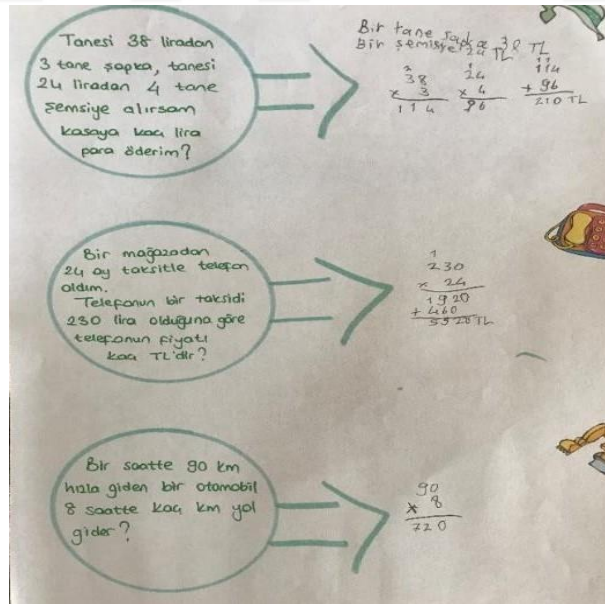 Tanesi 38 liradan
3 tane şapka, tanesi
24 liradan 4 tane
şemsiye alırsam
kasaya kaç lira
para öderim?
Bir tane şapka 38 TL
Bir şemsiye 24 TL
2
38
x 3
114
1
24
x 4
96
11
114
+ 96
210 TL
Bir mağazadan
24 ay taksitle telefon
aldım.
Telefonun bir taksidi
230 lira olduğuna göre
telefonun fiyatı
kaç TL'dir?
1
230
x 24
1920
+ 460
5520 TL
Bir saatte 90 km
hızla giden bir otomobil
8 saatte kaç km yol
gider?
90
x 8
720